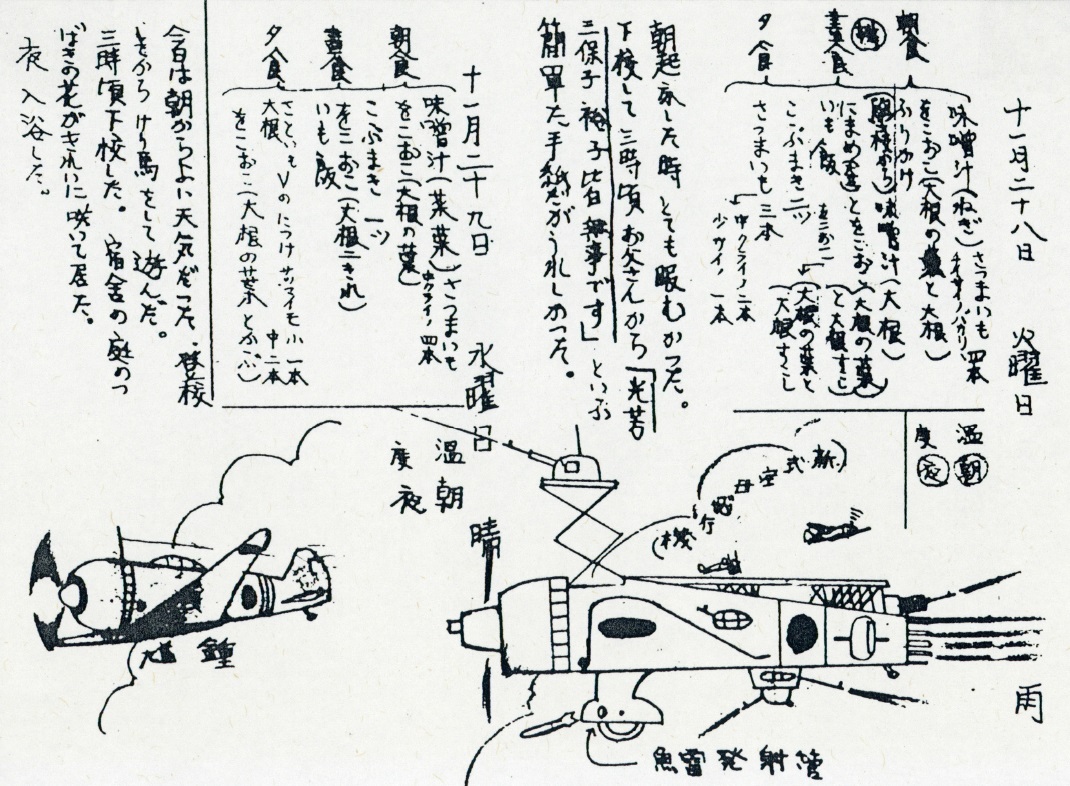 十一月二十八日 火曜日
雨
温 朝
度 夜
朝食
味噌汁(ねぎ)さつまいも 四本
をこおこ(大根の葉と大根)
ふりかけ
昼食
味噌汁(大根)
にまめ
いも飯
夕食
こぶまき 二ツ
さつまいも 三本
中クライノ 二本
少サイノ 一本
をこおこ
大根の葉と
大根すこし
朝起床した時 とても眠むかつた。
下校して三時頃お父さんから「光芳
三保子 裕子皆無事です」といふ
簡単た手紙だがうれしかつた。
新式空母飛行機
魚雷発射管
十一月二十九日 水曜日
晴
温 朝
度 夜
朝食
味噌汁(菜葉)さつまいも
中クライノ 四本
をこおこ(大根の葉)
昼食
こぶまき 一ツ
をこおこ(大根二きれ)
いも飯
夕食
さといものにつけ サツマイモ 小一本
中二本
大根
をこおこ(大根の葉とぶ
今日は朝からよい天気だつた。登校
してから けり馬をして遊んだ。
三時頃下校した。宿舎の庭のつ
ばきの花がきれいに咲いて居た。
夜 入浴した。
鍾